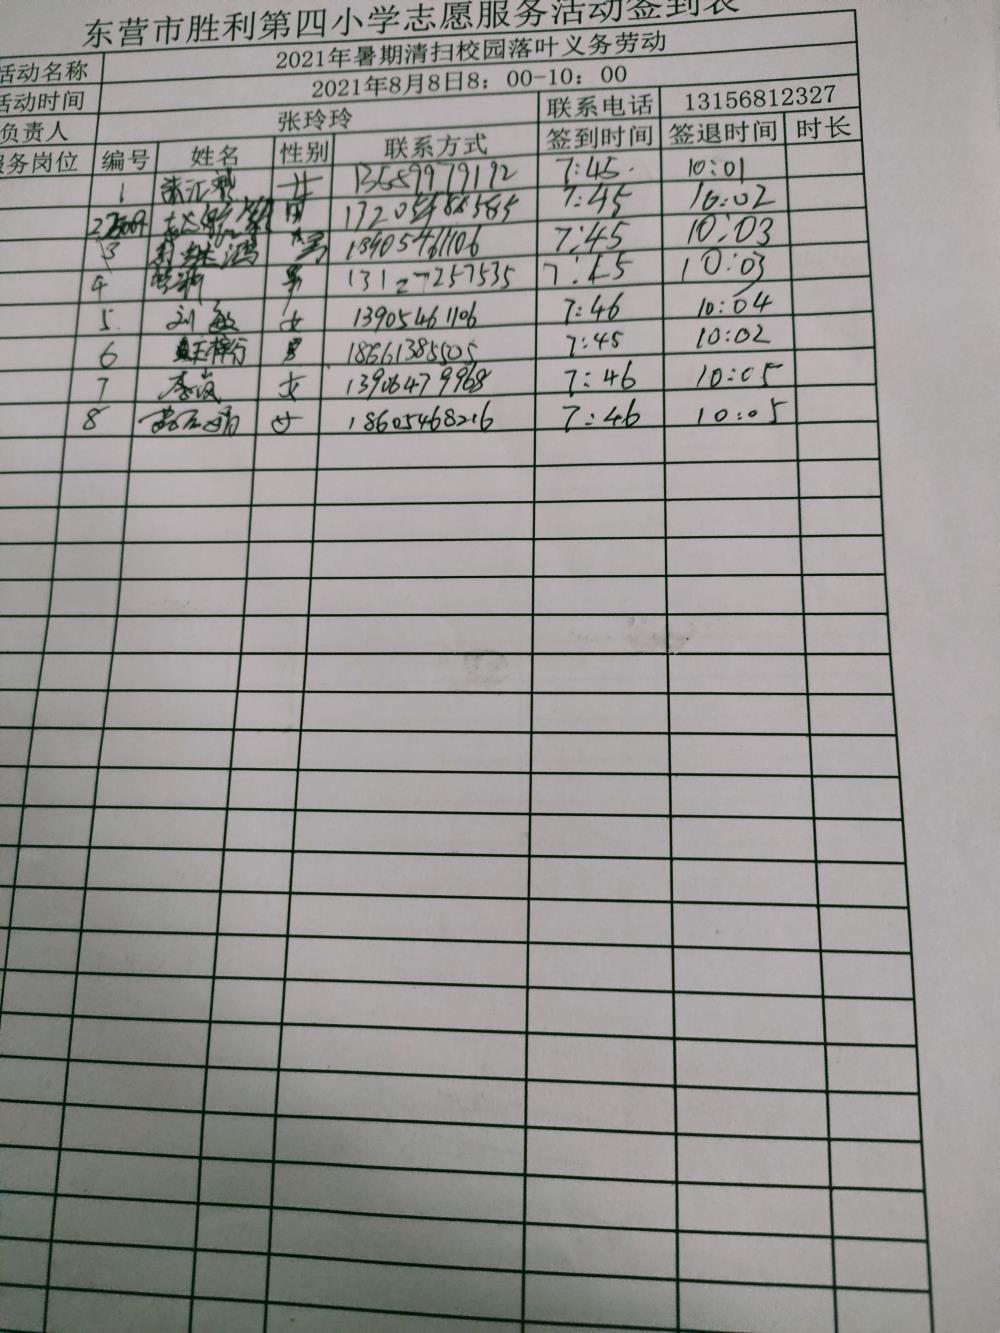 东营市胜利第四小学志愿服务活动签到表
活动名称 2021年暑期清扫校园落叶义务劳动
活动时间 2021年8月8日8：00-10：00
负责人 张玲玲 联系电话 13156812327
服务岗位 编号 姓名 性别 联系方式 签到时间 签退时间 时长
1 女 13589979192 7:45 10:01
2 男 7:45 10:02
3 男 13905461106 7:45 10:03
4 男 13127257535 7:45 10:03
5 刘敏 女 13905461106 7:46 10:04
6 男 18661385505 7:45 10:02
7 李岚 女 13906479968 7:46 10:05
8 女 18605468216 7:46 10:05